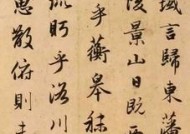 域言歸東藩
陵景山日既
乎蘅皋秣
流眄乎洛川
思散俯則未